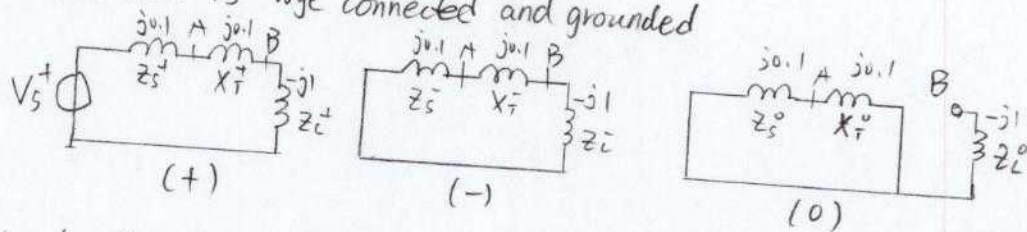 connected and grounded
j0.1 A j0.1 B
V_S^+ Z_S^+ X_T^+ -j1 Z_L^+
(+)
j0.1 A j0.1 B
Z_S^- X_T^- -j1 Z_L^-
(-)
j0.1 A j0.1 B
Z_S^0 X_T^0 -j1 Z_L^0
(0)